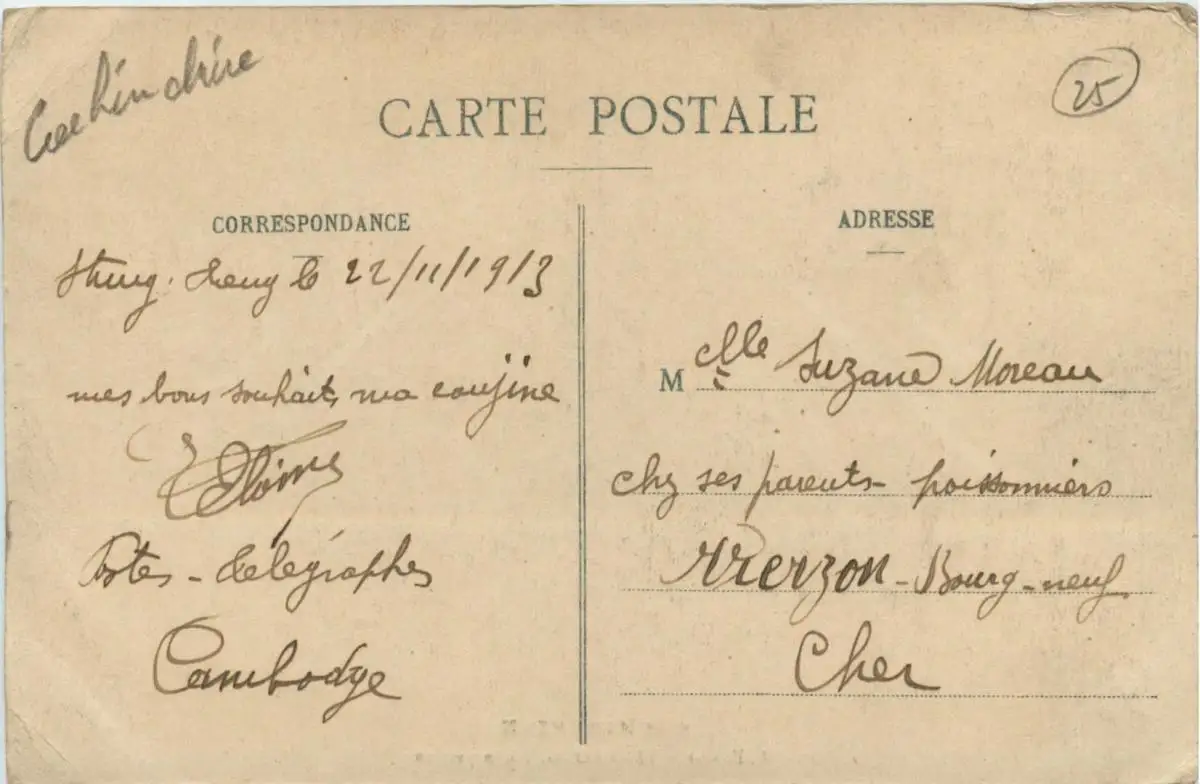 Cochinchine
25
CARTE POSTALE
CORRESPONDANCE
Stung-Treng le 22/11/1913
mes bons souhaits, ma cousine
Postes - Télégraphes
Cambodge
ADRESSE
M elle Suzane Moreau
chez ses parents - poissonniers
Vierzon - Bourg-neuf
Cher